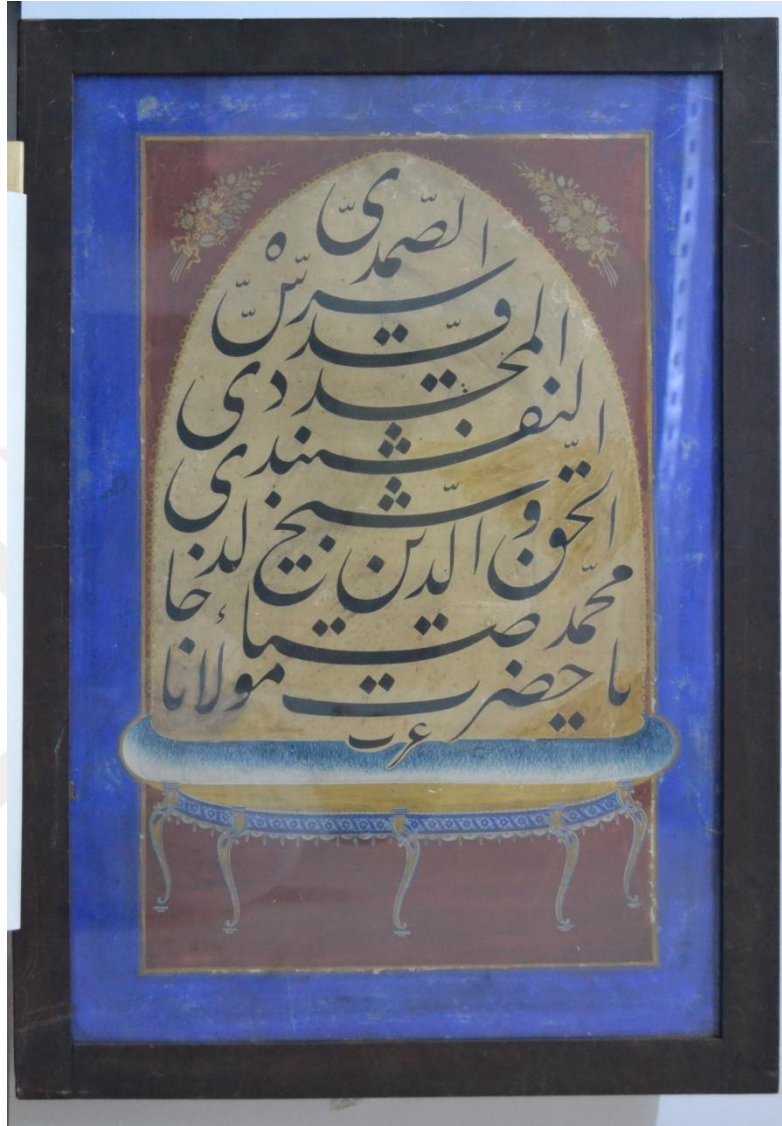 يا حضرت مولانا
محمّد ضياء
الحقّ و الدّين شيخ خالد
النقشبندى
المجددى
قدّس سرّه
الصّمدى